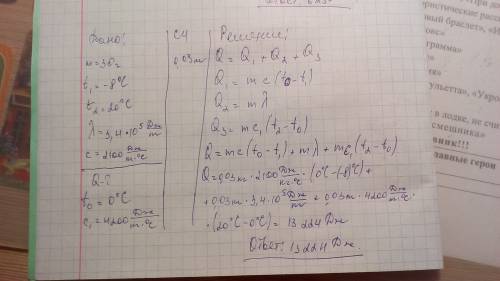 Дано:
m=30г
t₁=-8°C
t₂=20°C
λ=3,4·10⁵ Дж/кг
c=2100 Дж/кг·°C
Q-?
t₀=0°C
c₁=4200 Дж/кг·°C
СИ
0,03кг
Решение:
Q=Q₁+Q₂+Q₃
Q₁=mc(t₀-t₁)
Q₂=mλ
Q₃=mc₁(t₂-t₀)
Q=mc(t₀-t₁)+mλ+mc₁(t₂-t₀)
Q=0,03кг·2100 Дж/кг·°C·(0°C-(-8)°C)+
+0,03кг·3,4·10⁵ Дж/кг+0,03кг·4200 Дж/кг·°C
·(20°C-0°C)=13224Дж
Ответ: 13224Дж.
грамма»
ульетта», «Укро
в лодке, не счит
смешника»
вник!!!
лавные герои